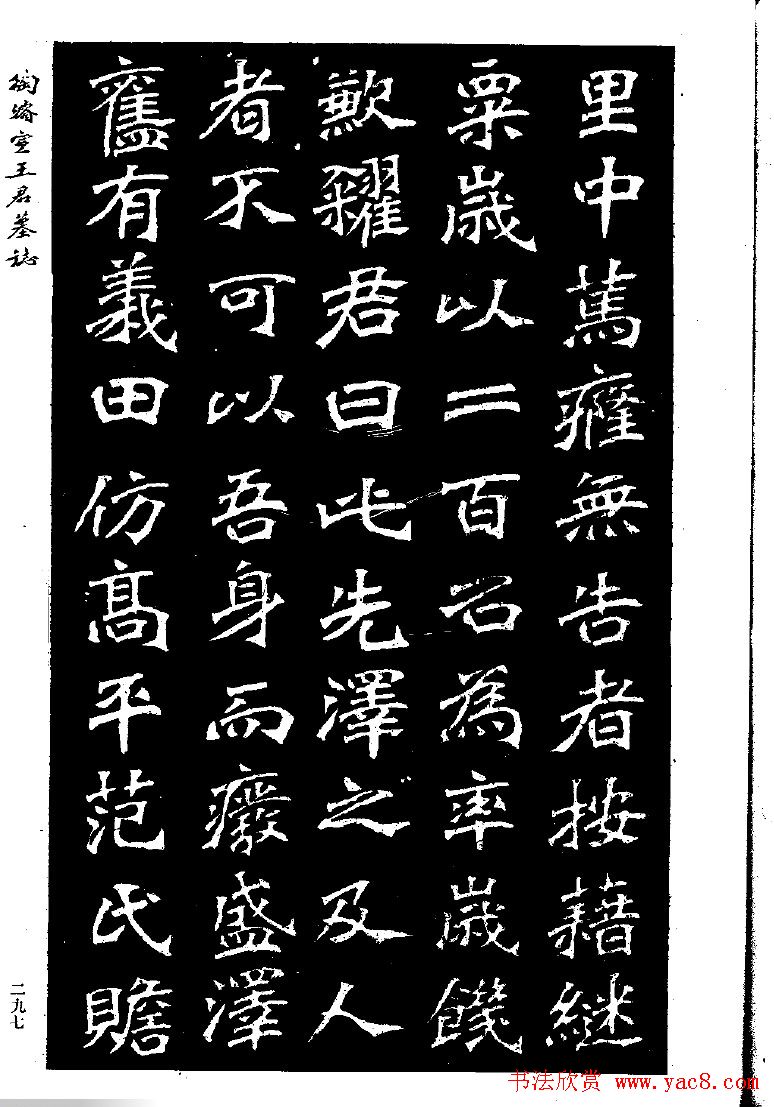 里中篤癃無告者按藉継
粟歲以二百石為率歲饑
歉糴君曰此先澤之及人
者不可以吾身而癈盛澤
舊有義田仿高平范氏贍
陶濬宣王君墓誌
二九七
书法欣赏 www.yac8.com